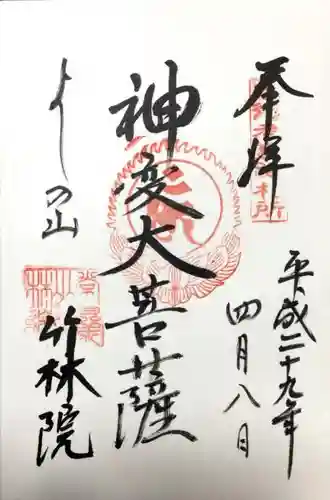 奉拝
平成二十九年
四月八日
神変大菩薩
よしの山
竹林院